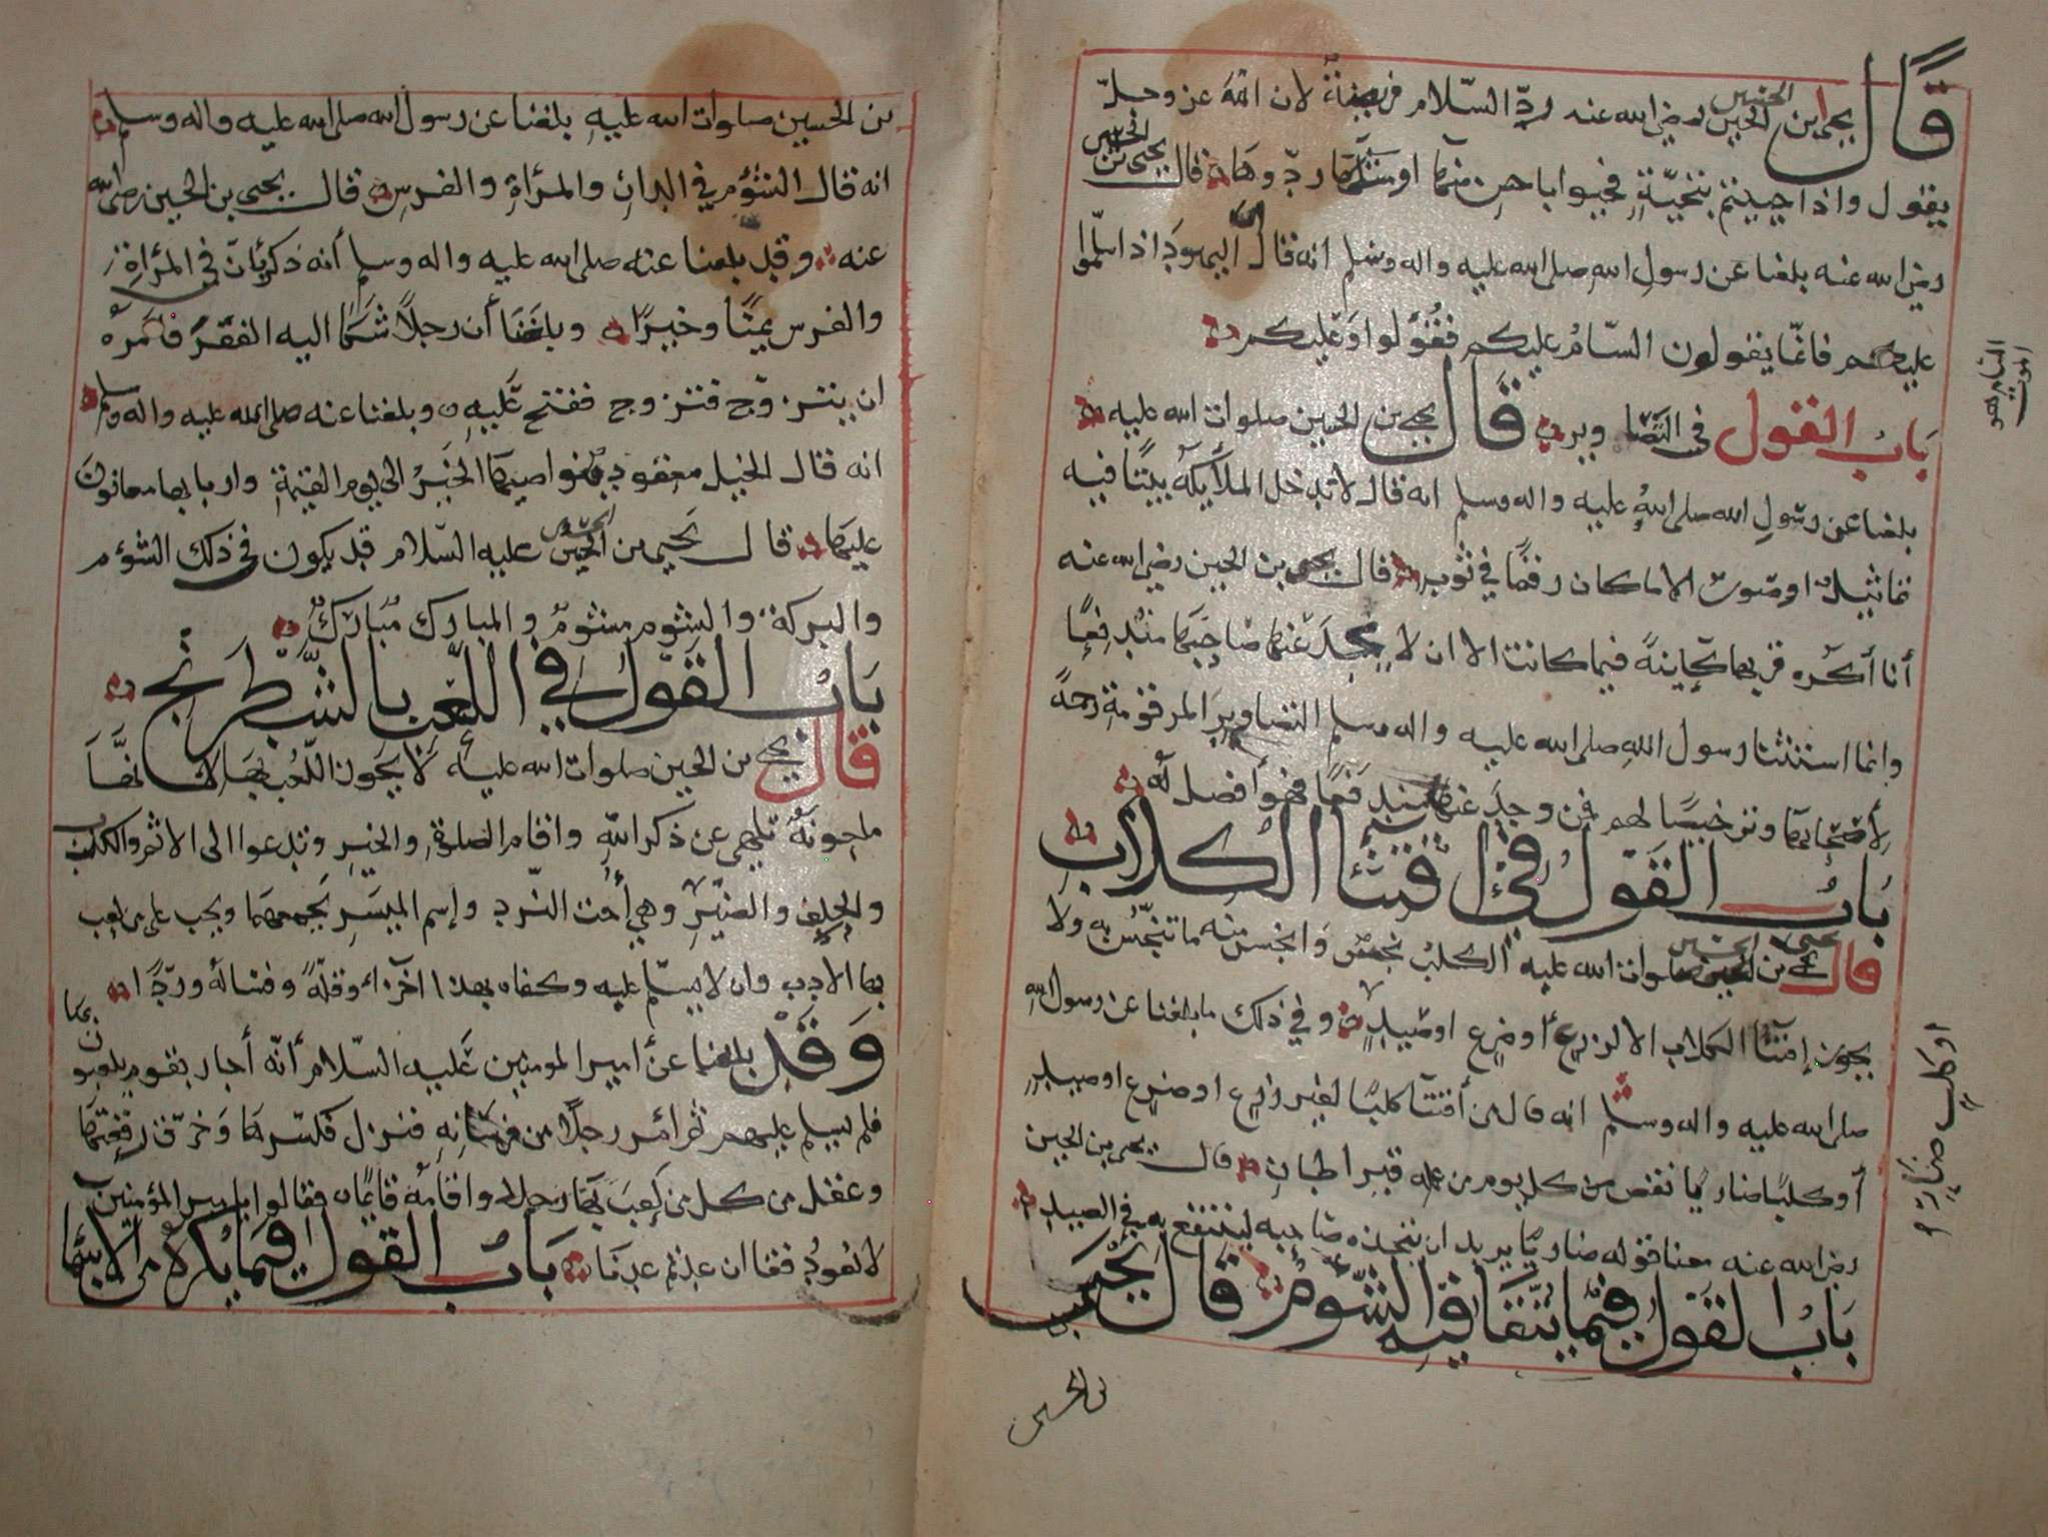 قال يحيى ابن الحسين رضي الله عنه رد السّلام فريضة لان الله عز وجل
يقول واذا حييتم بتحيّةٍ فحيوا باحسن منها او ردوها قال يحيى بن الحسين
رضي الله عنه بلغنا عن رسول الله صلى الله عليه واله وسلم انه قال اليهود اذا سلّموا
عليكم فانمّا يقولون السّامُ عليكم فقولوا وعليكم
السام هو
الموت
بابُ القول في التصاوير قال يحيى بن الحسين صلوات الله عليه
بلغنا عن رسول الله صلى الله عليه واله وسلم انه قال لا تدخل الملائكة بيتًا فيه
تماثيل او صورة الا ما كان رقمًا في ثوب قال يحيى بن الحسين رضي الله عنه
أنا أكره قربها كاينةً فيما كانت الا ان لا يجد عنها صاحبها مندفعًا
وانما استثنا رسول الله صلى الله عليه واله وسلم التصاوير المرقومة رحمةً
لأصحابها وترخيصًا لهم فمن وجد عنها مندفعًا فهو أفضل له
بابُ القول في اقتنا الكلاب
قال يحيى بن الحسين صلوات الله عليه الكلب نجس وانجس منه ما تنجّس به ولا
يجوز إقتنا الكلاب الا لزرعٍ أو ضرعٍ او صيدٍ وفي ذلك ما بلغنا عن رسول الله
صلى الله عليه واله وسلم انه قال من أقتنا كلبًا لغير زرع او ضرع او صيد
او كلبٍ ضارٍ
أو كلبًا ضاريًا نقص من كل يوم من عمله قيراطان قال يحيى بن الحسين
رضي الله عنه معنا قوله ضاريًا يريد ان يتخذه صاحبه لينتفع به في الصيد
بابُ القول فيما يتّقا فيه الشّؤم قال يحيى
بن الحسين
بن الحسين صلوات الله عليه بلغنا عن رسول الله صلى الله عليه واله وسلم
انه قال الشؤم في الدار والمرأة والفرس قال يحيى بن الحسين رضي الله
عنه وقد بلغنا عنه صلى الله عليه واله وسلم أنه ذكر بأن في المرأة
والفرس يمنًا وخيرًا وبلغنا أن رجلاً شكا اليه الفقر فأمره
ان يتزوّج فتزوج ففتح عليه وبلغنا عنه صلى الله عليه واله وسلم
انه قال الخيل معقود بنواصيها الخير الى يوم القيمة واربابها معانون
عليها قال يحيى بن الحسين عليه السّلام قد يكون في ذلك الشؤم
والبركة والشوم مشوم والمبارك مبارك
بابُ القول في اللّعب بالشّطرنج
قال يحيى بن الحسين صلوات الله عليه لا يجوز اللّعب بها لانها
ملعونة تلهي عن ذكر الله واقام الصلوة والخير وتدعوا الى الاثم والكذب
والحلف والضير وهي أخت النّرد وإسم الميسر يجمعهما ويجب على من لعب
بها الادب وان لا يسلّم عليه وكفاه بهذا اخزاء وقلّةً وفسالةً وردًّا
وقد بلغنا عن أمير المومنين عليه السّلام أنّه أجاز بقوم يلعبون بها
فلم يسلم عليهم ثم أمر رجلًا من فرسانه فنزل فكسّرها وخرّق رقعتها
وعقل من كل من لعب بها رجله واقامه قايمًا فقالوا يا امير المؤمنين
لا نعود فقال ان عدتم عدنا بابُ القول فيما يكره من الاشياء